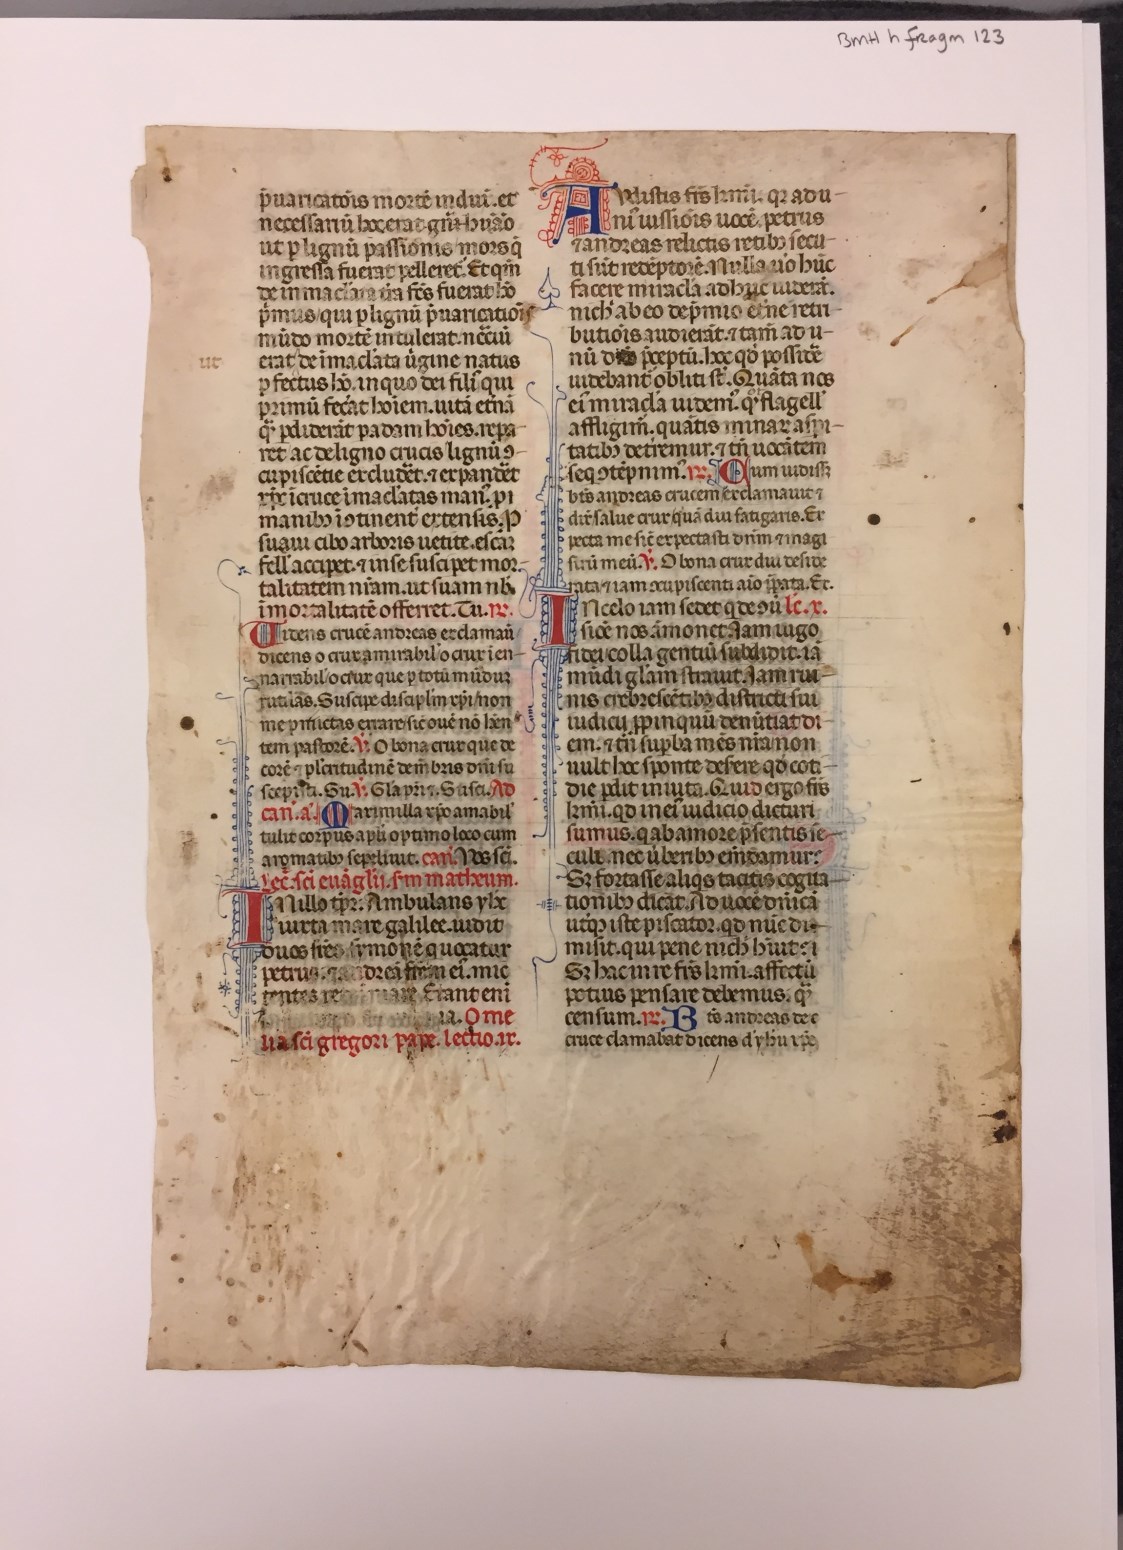 BMH h fragm 123
p̄uaricatōis mortē indux̄. et
necessariū hoc erat gn̄i hūāo
ut p lignū passionis mors q̄
ingressa fuerat pelleret. Et qm̄
de inmaclata
p̄mus qui p lignū p̄uaricatiōis
mūdo mortē intulerat. nēcīū
erat de īmaclata ūgine natus
ut
pfectus hō. in quo dei filiꝰ qui
primū fecat hoiem. uitā etnā
q̄ pdiderāt p adam hoīes. repa-
ret ac de ligno crucis lignū ꝯ-
cupiscētie excludēt. ⁊ expandēt
xpc ī cruce īmaclatas manꝰ. pi
manibꝫ īꝯtinentꝰ extensis. ꝑ
suaui cibo arboris uetite. escā
fellꝰ accipet. ⁊ in se suscipet mor-
talitatem nr̄am. ut suam nb̄
īmortalitatē offerret. Tu. ꝶ.
Uidens crucē andreas exclamauͥ
dicens o crux amirabilꝰ o crux ī en-
narrabilꝰ o crux que p totū mūdū
rutilas. Suscipe disciplm xpi non
me pmictas errare sic ouē nō hēn
tem pastorē. ℣. O bona crux que de
corē ⁊ plcritudinē de mēbris dn̄i su
scepisti. Su. ℣. Gla pri ⁊. Susci. Ad
can. a. Maximilla xpo amabil
tulit corpus apli optimo loco cum
aromatibꝫ sepeliuit. can. Nos sci.
Lec. sci euāglii. sm matheum.
In illo tpr. Ambulans yhc
iuxta mare galilee. uidit
duos frēs symonē q uocatur
petrus. ⁊ andreā frem eiꝰ. mic
tentes Erant eni
ia. Ome
lia sci gregori pape. lectio. ix.
Audistis frs kmi. qꝛ ad u-
niꝰ iussiōis uocē. petrus
⁊ andreas relictis retibꝫ secu-
ti sūt redēptorē. Nulla uo hūc
facere miracla adhuc uiderāt.
nichꝰ ab eo de p̄mio etne retri-
butiōis audierāt. ⁊ tam̄ ad u-
nū p̄ceptū. hoc qd̄ possidē
uidebant obliti st̄. Quāta nos
eiꝰ miracla uidemꝰ. qͥ flagellꝰ
affligimꝰ. quātis minaꝝ aspi-
tatibꝫ detremur. ⁊ tn̄ uocātem
seq ꝯtēpnimꝰ. ꝶ. Cum uidissꝫ
bt̄s andreas crucem exclamauit ⁊
dix̄ salue crux quā diu fatigaris. Ex
pecta me sic̄ expectasti dnm ⁊ magi
strū meū. ℣. O bona crux diu desidē
rata ⁊ iam ꝯcupiscenti aīo p̄pata. Ex.
In celo iam sedet q de ꝯū lc̄. x.
sioē nos āmonet. Iam iugo
fidei colla gentiū subdidit. iā
mūdi glām strauit. Iam rui-
nis crebrescētibꝫ districti sui
iudicij ꝓpinquū denūtiat di-
em. ⁊ tn̄ supba mēs nrā non
uult hoc sponte desere qd̄ coti-
die pdit inuita. Quid ergo frs
kmi. qd̄ in eiꝰ iudicio dicturi
sumus. q ab amore p̄sentis se-
culi. nec ūberibꝫ emēdamur?
Sꝫ fortasse aliqs tacitis cogita-
tionibꝫ dicāt. Ad uocē dn̄icā
utqꝫ iste piscator. qd̄ nūc di-
misit. qui pene nichꝰ hūit?
Sꝫ hac in re frs kmi. affectū
potius pensare debemus. q̄
censum. ꝶ. Bt̄s andreas de c
cruce clamabat dicens